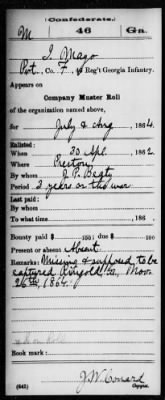 (Confederate.)
M 46 Ga.
I. Mayo
Pvt., Co. F, 46 Reg't Georgia Infantry.
Appears on
Company Muster Roll
of the organization named above,
for July & Aug, 1864.
Enlisted:
When 30 Apl, 1862
Where Preston
By whom J. P. Beaty
Period 3 years or the war
Last paid:
By whom
To what time 186
Bounty paid $ 100; due $ 100
Present or absent Absent
Remarks: Missing & supposed to be
captured Ringold Ga, Nov
26th 1864.
Book mark:
(642) J. W. Conard
Copyist.